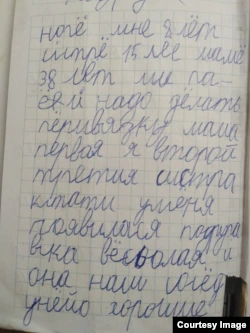 ноге мне 8 лет
систре 15 лее маме
38 лет ми па-
ёви надо делать
перивязку мама
первая я второй
третия систра
кстати уменя
появилася подруга
вка весолая и
она наш сосед
унейо хорошие
Courtesy Image